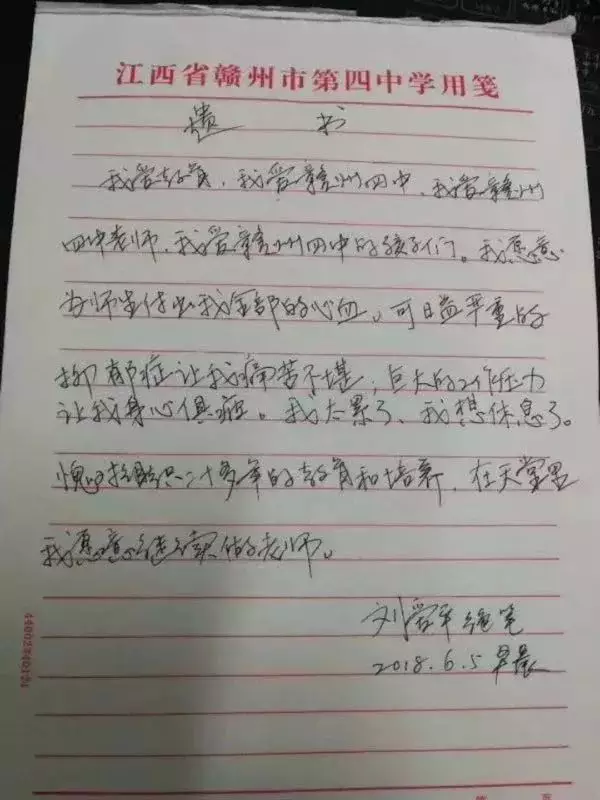 江西省赣州市第四中学用笺
遗 书
我爱教育，我爱赣州四中，我爱赣州
四中老师，我爱赣州四中的孩子们。我愿意
为师生付出我全部的心血。可日益严重的
抑郁症让我痛苦不堪，巨大的工作压力
让我身心俱疲。我太累了，我想休息了。
愧对组织二十多年的教育和培养，在天堂里
我愿意继续做老师。
刘 绝笔
2018.6.5 早晨